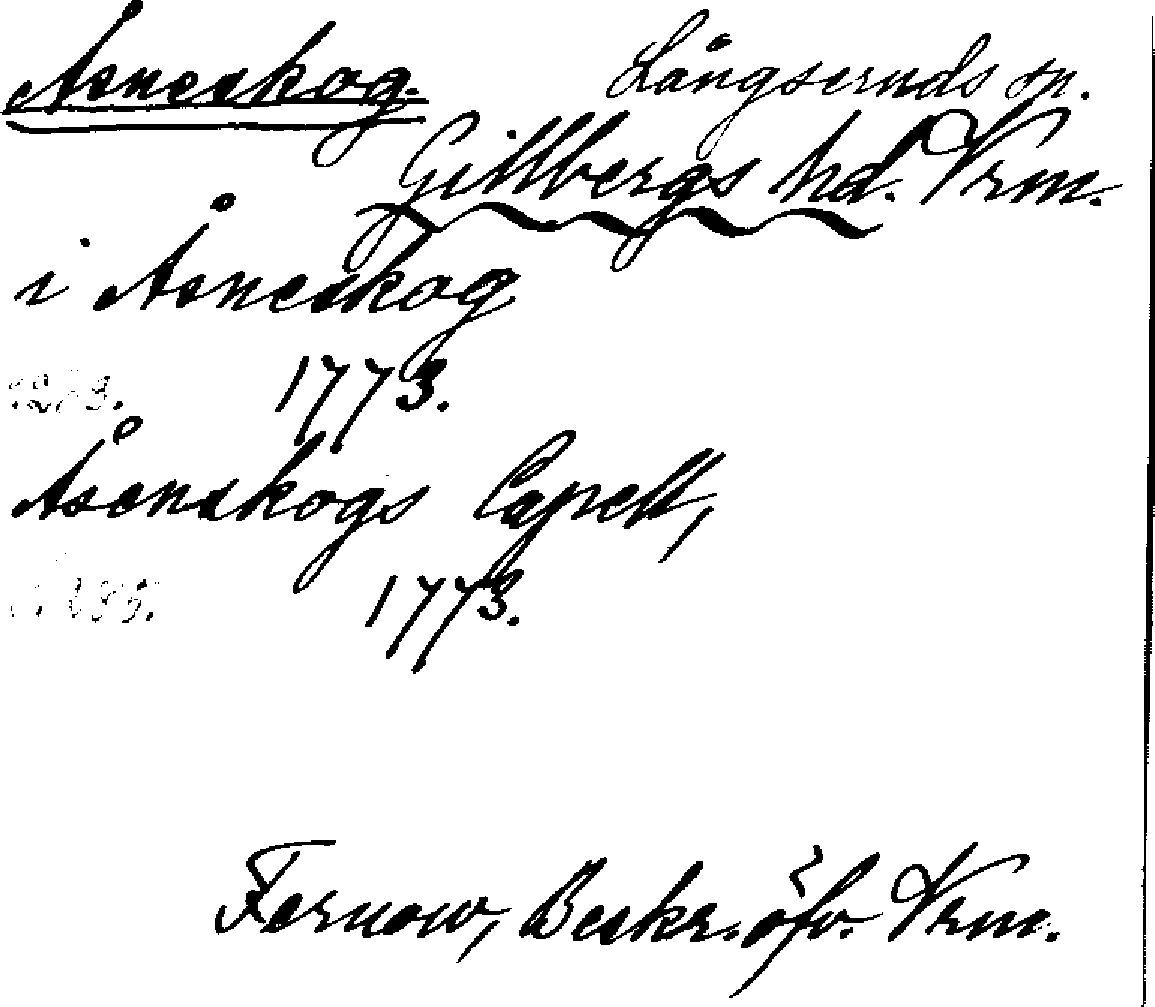 Åsneskog. Långseruds sn.
Gillbergs hd. Vrm.
i Åsneskog
1773.
Åsenskogs Capell,
1773.
Fernow, Beskr. öfv. Vrm.